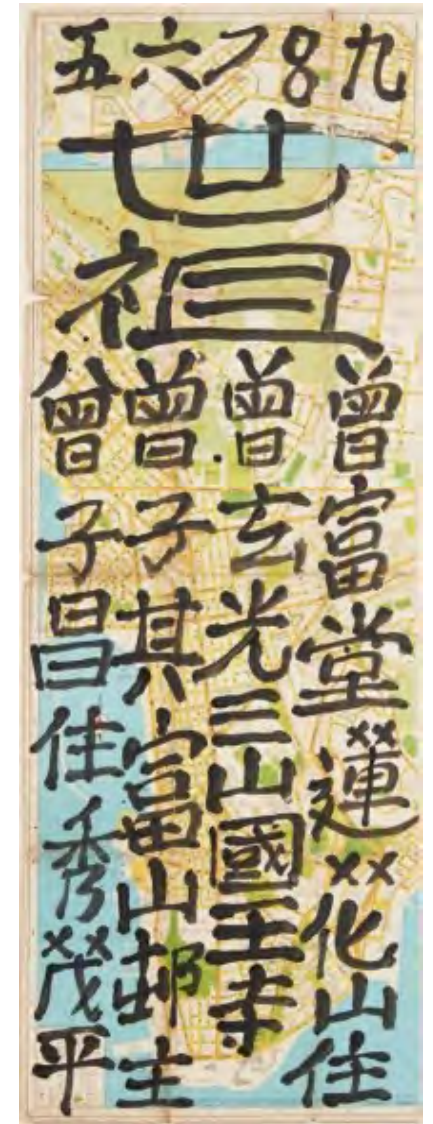 九87六五
世祖
曾富堂蓮花山住
曾玄光三山國王寺
曾子其富山邨主
曾子昌住秀茂平